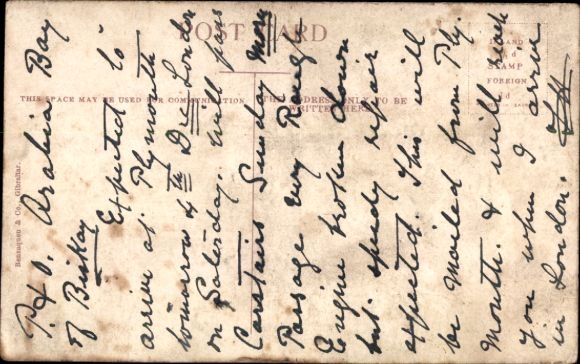 POST CARD
THIS SPACE MAY BE USED FOR COMMUNICATION
THE ADDRESS ONLY TO BE
WRITTEN HERE
STAMP
FOREIGN
Benzaquen & Co., Gibraltar.
P. & O. Arabia Bay
of Biskay
Expected to
arrive at Plymouth
tomorrow 4th Dec London
on Saturday. will pass
Carstairs Sunday Morn
Passage very Rough
Engine broken down
but speedy repair
expected. This will
be mailed from Ply.
mouth. & will reach
you when I arrive
in London.